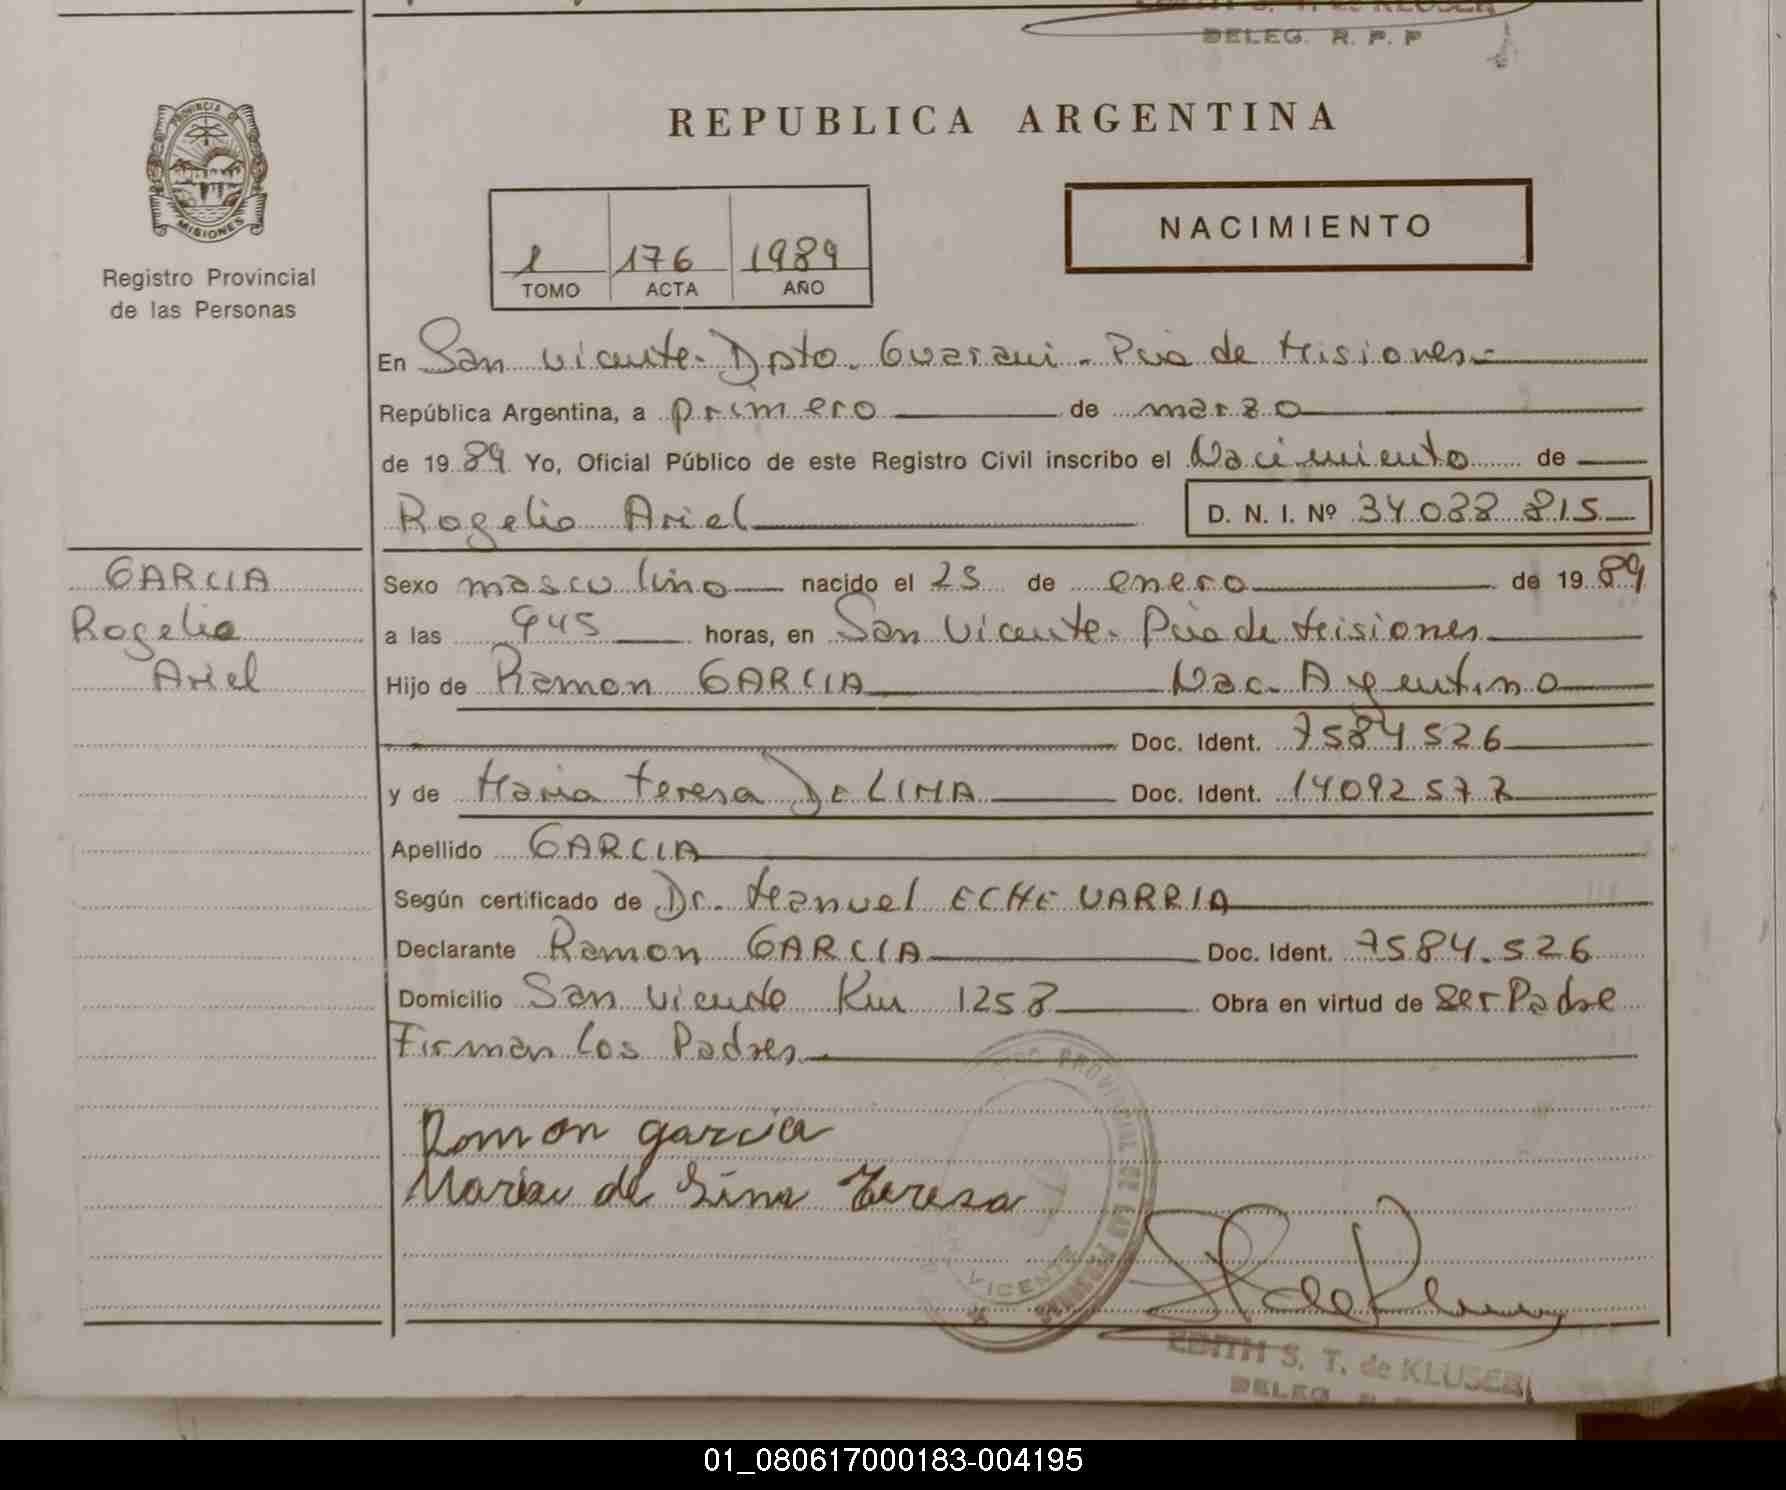 EDITH S. T. de KLUSER
DELEG. R. P. P
PROVINCIA DE
MISIONES
Registro Provincial
de las Personas
REPUBLICA ARGENTINA
1 176 1989
TOMO ACTA AÑO
NACIMIENTO
En San Vicente. Dpto. Guarani - Pcia de Misiones
República Argentina, a primero de marzo
de 19 89 Yo, Oficial Público de este Registro Civil inscribo el Nacimiento de
Rogelio Ariel D. N. I. Nº 34.038 815
GARCIA
Rogelio
Ariel
Sexo masculino nacido el 25 de enero de 19 89
a las 945 horas, en San Vicente. Pcia de Misiones
Hijo de Ramon GARCIA Nac. Argentino
Doc. Ident. 7584526
y de Maria Teresa De LIMA Doc. Ident. 14092577
Apellido GARCIA
Según certificado de Dr. Manuel ECHEVARRIA
Declarante Ramon GARCIA Doc. Ident. 7584.526
Domicilio San Vicente Km 1258 Obra en virtud de ser Padre
Firman los Padres
Ramon garcia
Maria de Lima Teresa
PROVINCIAL DE LAS
VICENTE
EDITH S. T. de KLUSER
DELEG.
01_080617000183-004195